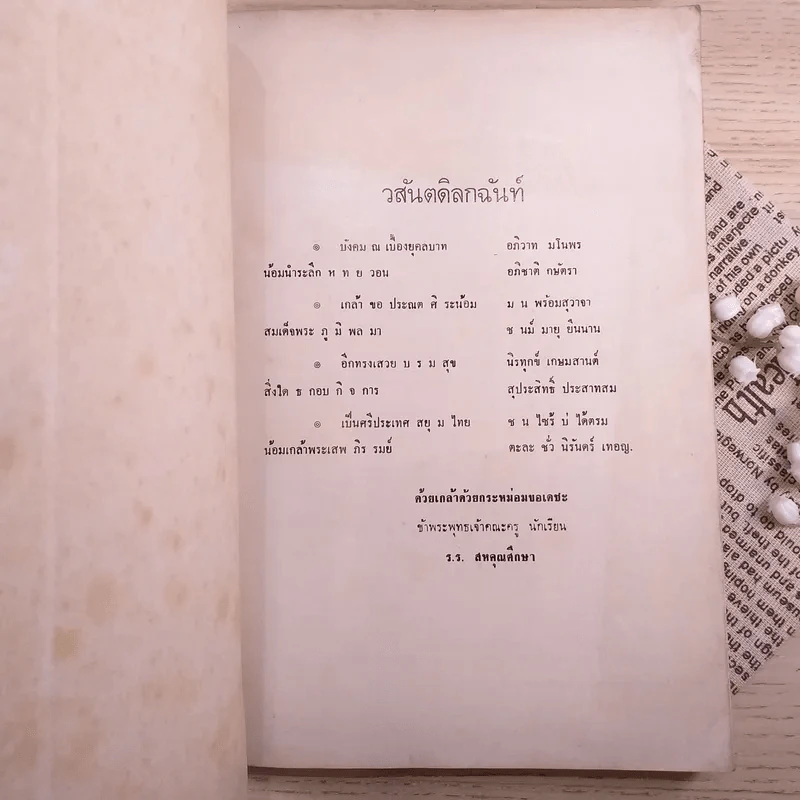 วสันตดิลกฉันท์
๏ บังคม ณ เบื้องยุคลบาท อภิวาท มโนพร
น้อมนำระลึก ห ท ย วอน อภิชาติ กษัตรา
๏ เกล้า ขอ ประณต ศิ ระน้อม ม น พร้อมสุวาจา
สมเด็จพระ ภู มิ พล มา ช นม์ มายุ ยืนนาน
๏ อีกทรงเสวย บ ร ม สุข นิรทุกข์ เกษมสานต์
สิ่งใด ธ กอบ กิ จ การ สุประสิทธิ์ ประสาทสม
๏ เป็นศรีประเทศ สยุ ม ไทย ช น ไซร้ บ่ ได้ตรม
น้อมเกล้าพระเสพ ภิร รมย์ ตะละ ชั่ว นิรันดร์ เทอญ.
ด้วยเกล้าด้วยกระหม่อมขอเดชะ
ข้าพระพุทธเจ้าคณะครู นักเรียน
ร.ร. สหคุณศึกษา
and are
interjecte
narrative
of his own
included a pictu
on a donkey
ealth
by Norwegi
classific